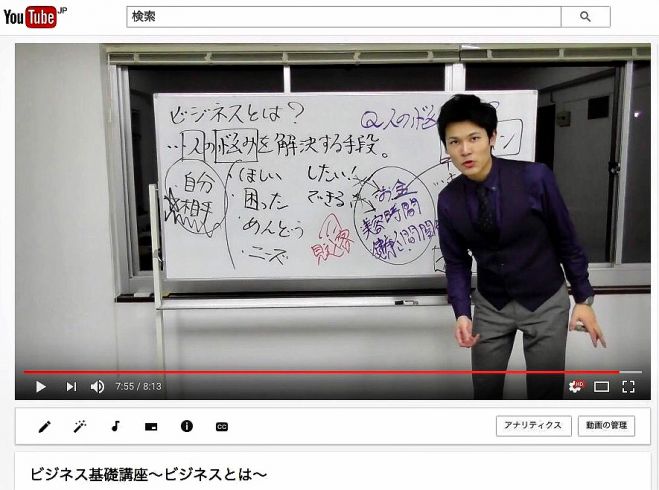 YouTube JP
検索
ビジネスとは？
…人の悩みを解決する手段。
Q.人の悩み
ン
自分
相手
・ほしい したい！
・困った できる
・めんどう
・ニーズ
お金
美容
時間
7:55 / 8:13
HD
CC
アナリティクス
動画の管理
ビジネス基礎講座～ビジネスとは～